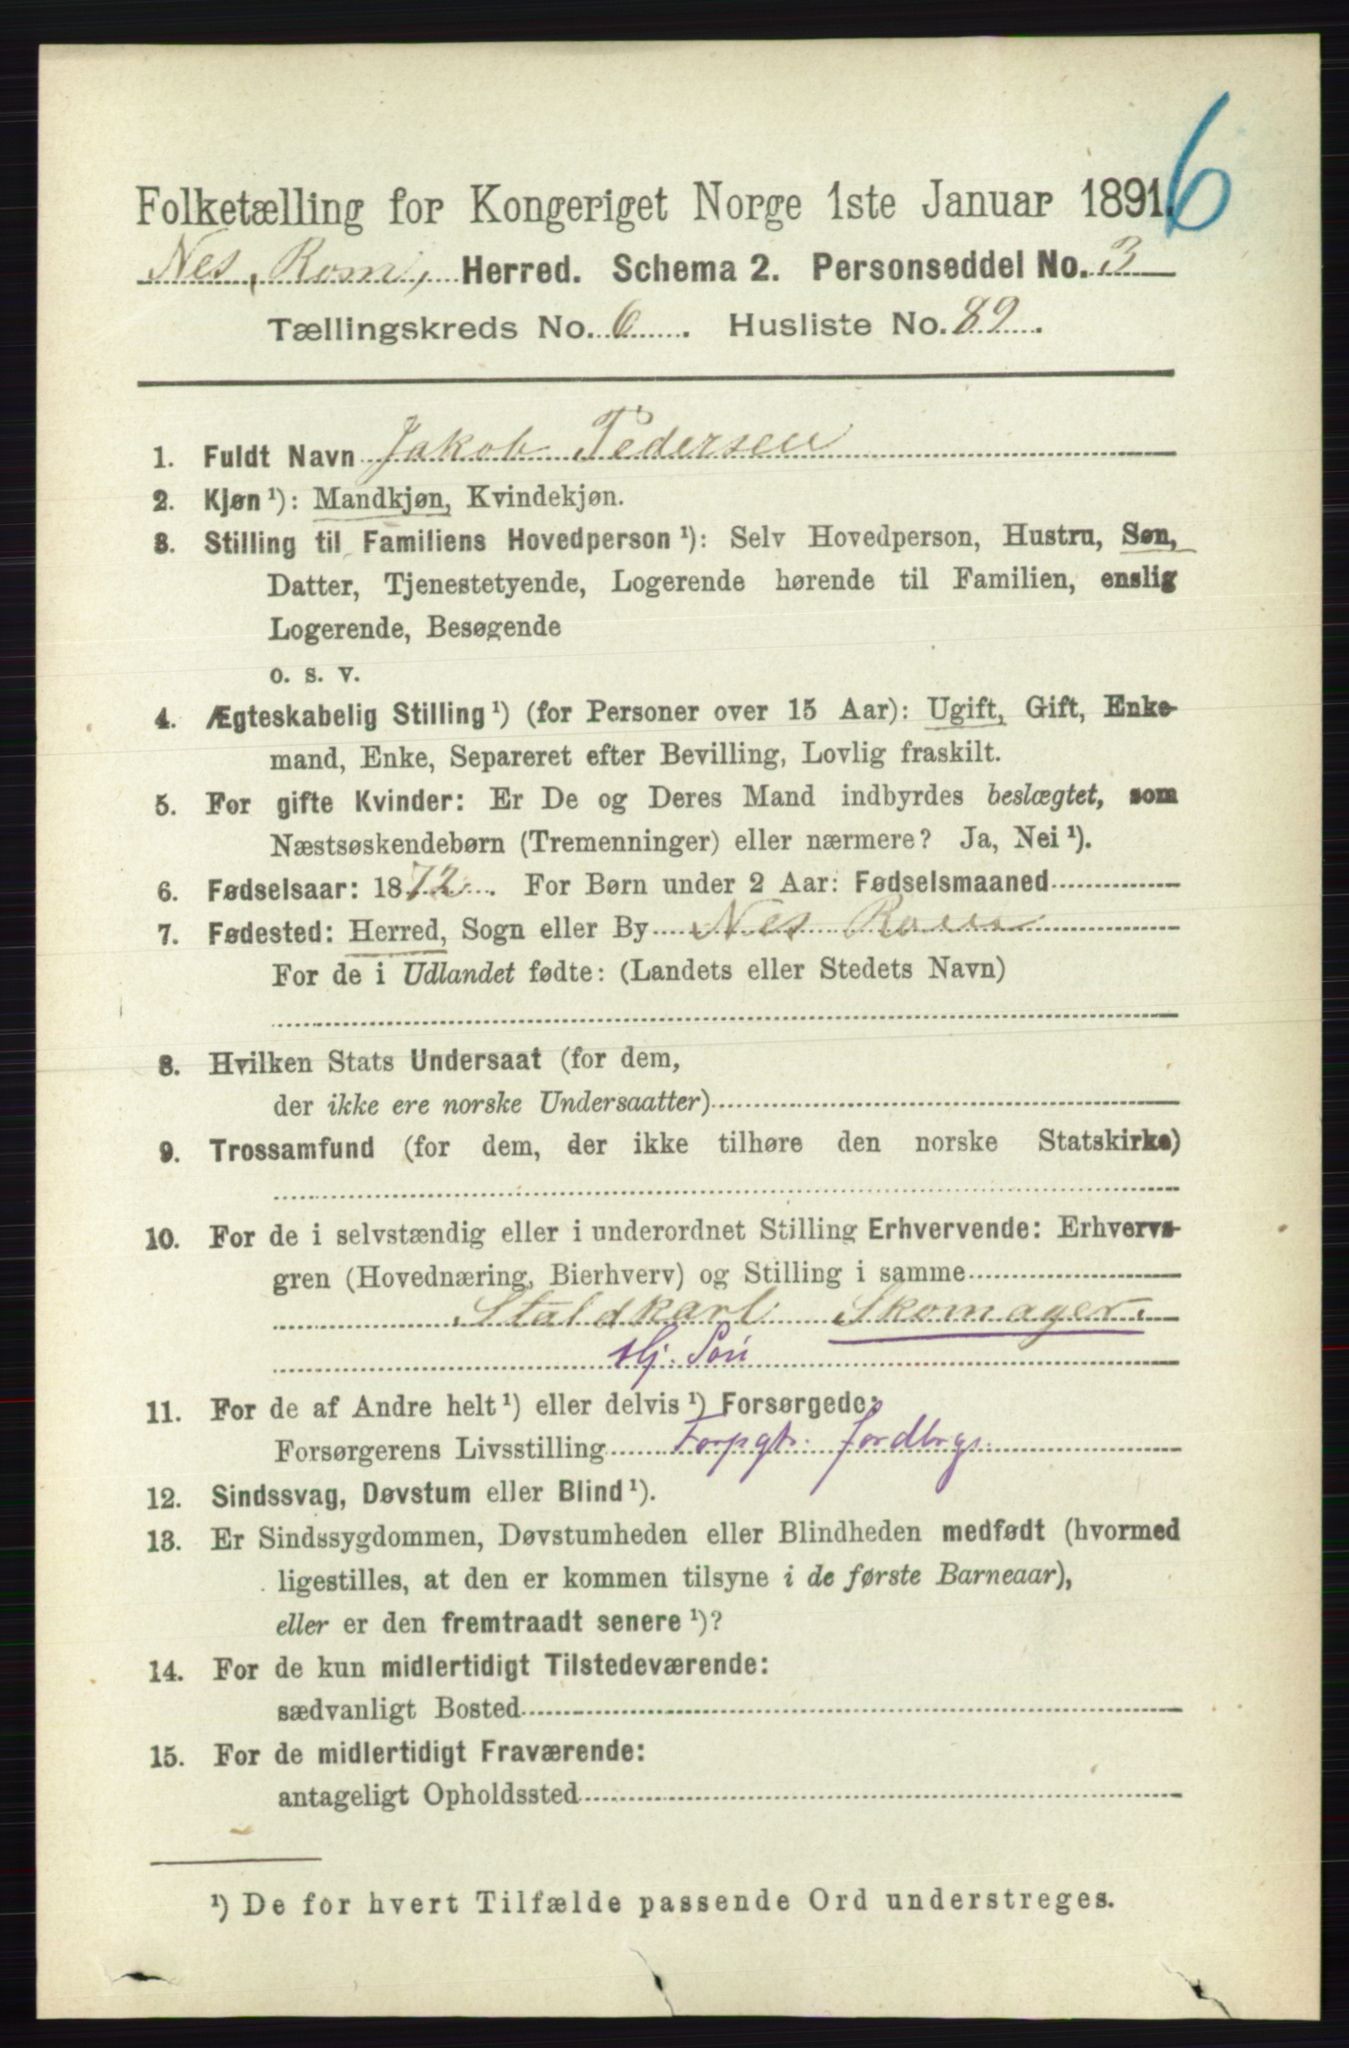 6
Folketælling for Kongeriget Norge 1ste Januar 1891.
Nes, Rom, Herred. Schema 2. Personseddel No. 3
Tællingskreds No. 6. Husliste No. 89.
1. Fuldt Navn Jakob Pedersen
2. Kjøn ¹): Mandkjøn, Kvindekjøn.
3. Stilling til Familiens Hovedperson ¹): Selv Hovedperson, Hustru, Søn,
Datter, Tjenestetyende, Logerende hørende til Familien, enslig
Logerende, Besøgende
o. s. v.
4. Ægteskabelig Stilling ¹) (for Personer over 15 Aar): Ugift, Gift, Enke-
mand, Enke, Separeret efter Bevilling, Lovlig fraskilt.
5. For gifte Kvinder: Er De og Deres Mand indbyrdes beslægtet, som
Næstsøskendebørn (Tremenninger) eller nærmere? Ja, Nei ¹).
6. Fødselsaar: 1872. For Børn under 2 Aar: Fødselsmaaned
7. Fødested: Herred, Sogn eller By Nes Rom
For de i Udlandet fødte: (Landets eller Stedets Navn)
8. Hvilken Stats Undersaat (for dem,
der ikke ere norske Undersaatter)
9. Trossamfund (for dem, der ikke tilhøre den norske Statskirke)
10. For de i selvstændig eller i underordnet Stilling Erhvervende: Erhvervs-
gren (Hovednæring, Bierhverv) og Stilling i samme
Staldkarl Skomager.
Hj. Søn
11. For de af Andre helt ¹) eller delvis ¹) Forsørgede:
Forsørgerens Livsstilling Forpgt. Jordbrgs.
12. Sindssvag, Døvstum eller Blind ¹).
13. Er Sindssygdommen, Døvstumheden eller Blindheden medfødt (hvormed
ligestilles, at den er kommen tilsyne i de første Barneaar),
eller er den fremtraadt senere ¹)?
14. For de kun midlertidigt Tilstedeværende:
sædvanligt Bosted
15. For de midlertidigt Fraværende:
antageligt Opholdssted
¹) De for hvert Tilfælde passende Ord understreges.